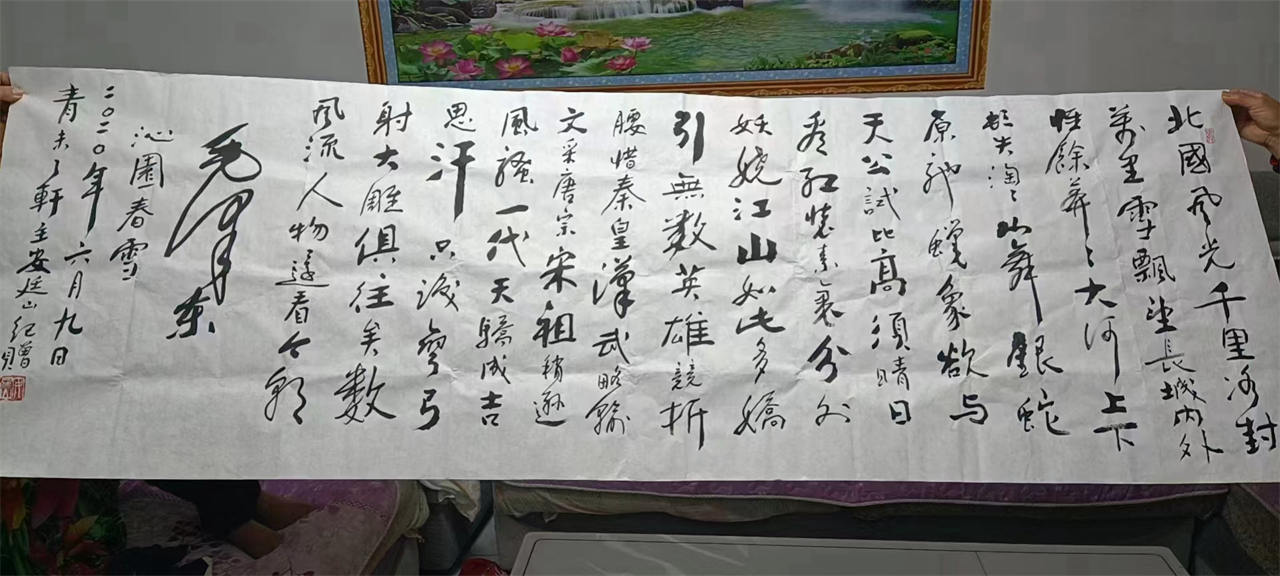 北國风光千里冰封
萬里雪飄望長城内外
惟餘莽々大河上下
頓失滔々山舞銀蛇
原馳蠟象欲与
天公試比高須晴日
看红裝素裹分外
妖嬈江山如此多嬌
引無数英雄競折
腰惜秦皇漢武略輸
文采唐宗宋祖稍遜
風騷一代天驕成吉
思汗只識彎弓
射大雕俱往矣数
風流人物還看今朝
毛澤东
沁園春雪
二〇二〇年六月九日
青未了軒主安廷山纪赠